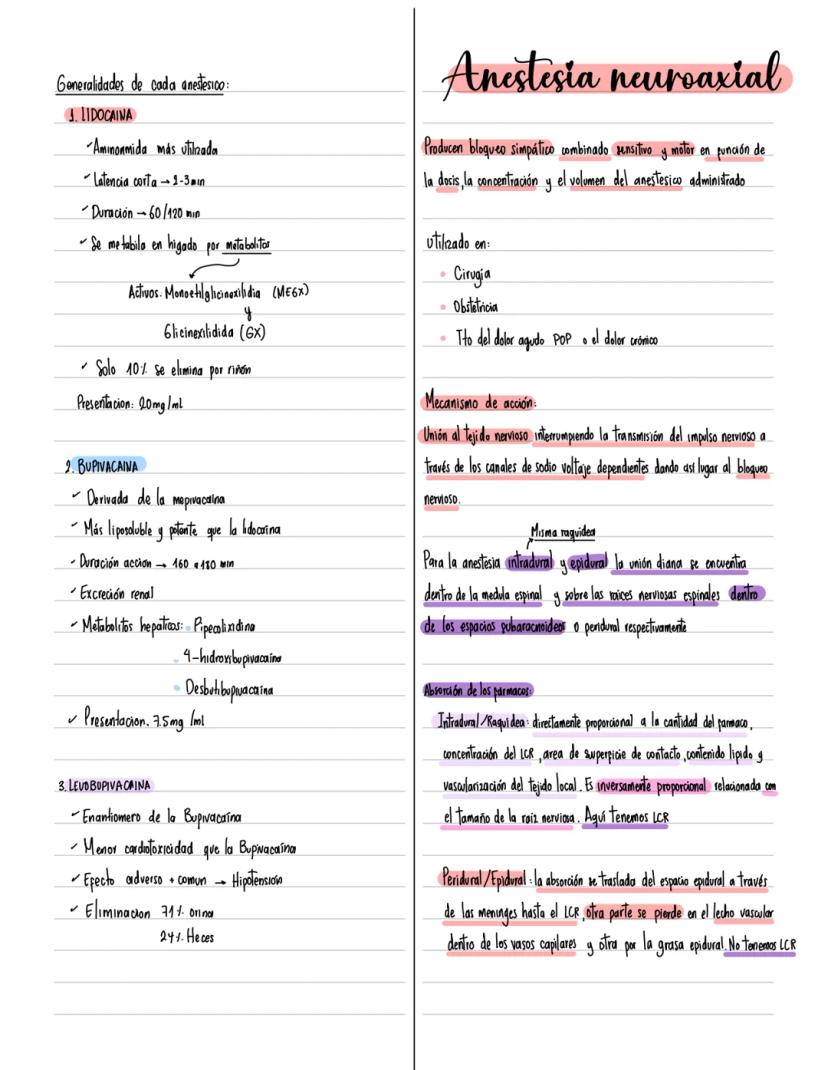 Generalidades de cada anestesico:
1. LIDOCAINA
Aminonmida más utilizada
Latencia corta → 2-3min
Duración → 60/120 min
Se metabila en higado por metabolitos
Activos. Monoetilglicinexilidia (MEGX)
y
Glicinexilidida (GX)
Solo 10% se elimina por riñón
Presentacion: 20mg/ml
2. BUPIVACAINA
Derivada de la mepivacaina
Más liposoluble y potente que la lidocaina
Duración accion → 160 a 180 min
Excreción renal
Metabolitos hepaticos: • Pipecolixidina
• 4-hidroxibupivacaina
• Desbutilbupivacaina
Presentacion. 7.5mg /ml
3. LEVOBUPIVACAINA
Enantiomero de la Bupivacaina
Menor cardiotoxicidad que la Bupivacaina
Efecto adverso + comun → Hipotensión
Eliminacion 71% orina
24% Heces
Anestesia neuroaxial
Producen bloqueo simpático combinado sensitivo y motor en función de
la dosis, la concentración y el volumen del anestesico administrado
utilizado en:
• Cirugía
• Obstetricia
• Tto del dolor agudo POP o el dolor crónico
Mecanismo de acción:
Unión al tejido nervioso interrumpiendo la transmisión del impulso nervioso a
través de los canales de sodio voltaje dependientes dando así lugar al bloqueo
nervioso.
Misma raquidea
Para la anestesia intradural y epidural la unión diana se encuentra
dentro de la medula espinal y sobre las raices nerviosas espinales dentro
de los espacios subaracnoideos o peridural respectivamente
Absorción de los farmacos:
Intradural/Raquidea: directamente proporcional a la cantidad del farmaco,
concentración del LCR, area de superficie de contacto, contenido lipido y
vascularización del tejido local. Es inversamente proporcional relacionada con
el tamaño de la raiz nerviosa. Aquí tenemos LCR
Peridural/Epidural: la absorción se traslada del espacio epidural a través
de las meninges hasta el LCR, otra parte se pierde en el lecho vascular
dentro de los vasos capilares y otra por la grasa epidural. No tenemos LCR